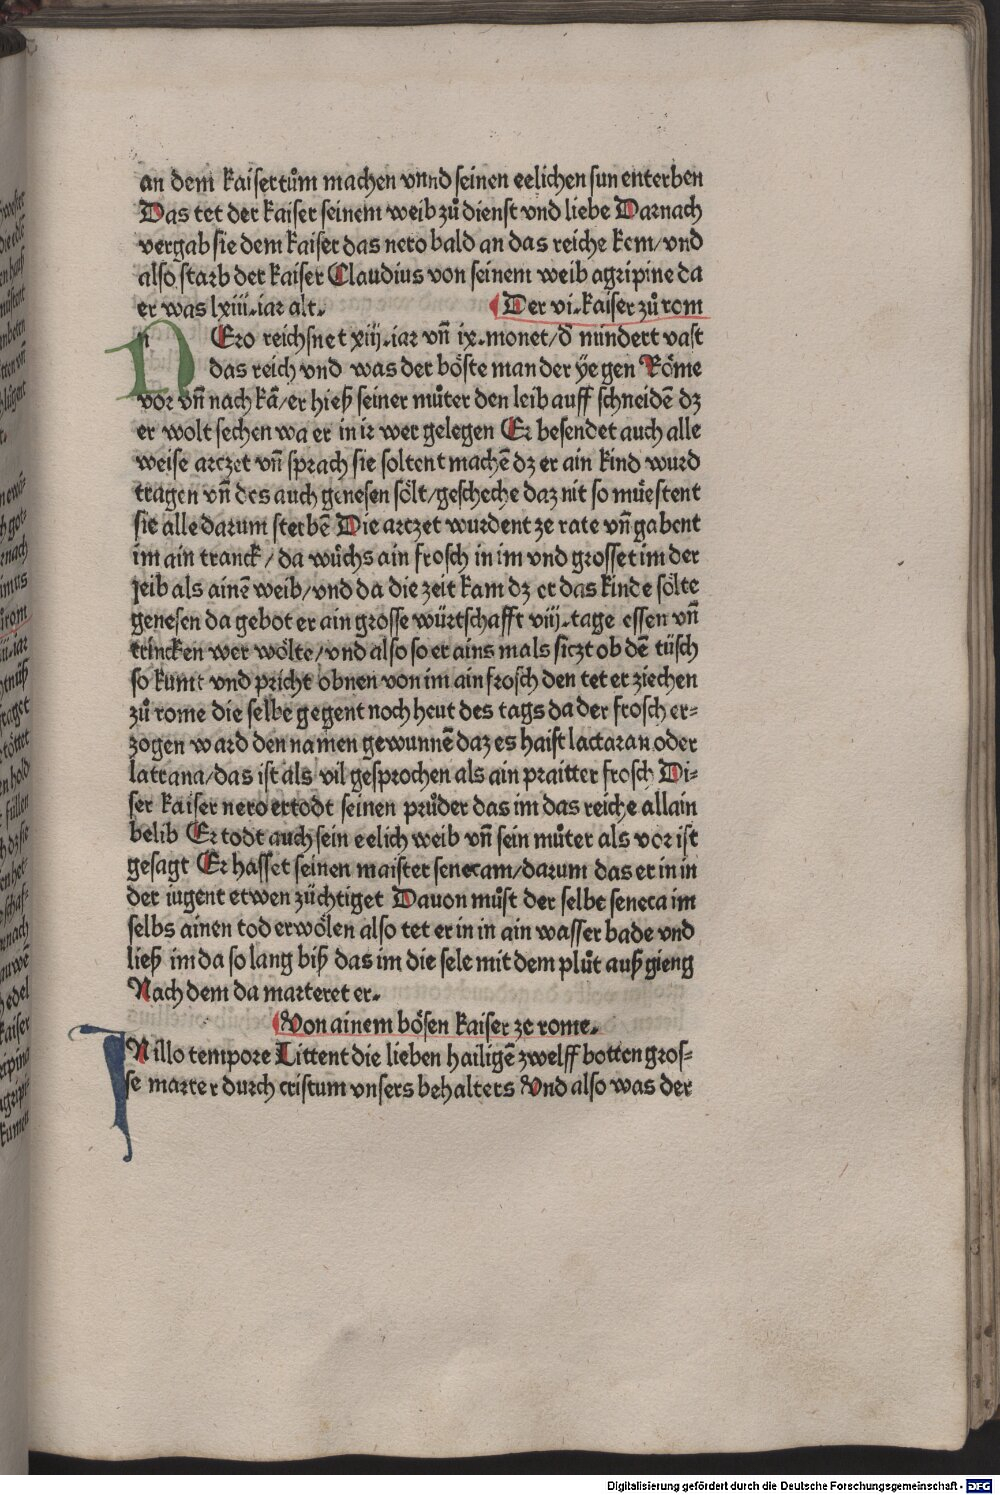 an dem kaisertům machen vnnd seinen eelichen sun enterben
Das tet der kaiser seinem weib zů dienst vnd liebe Darnach
vergab sie dem kaiser das nero bald an das reiche kem/vnd
also starb der kaiser Claudius von seinem weib agripine da
er was lxiii.iar alt. Der vi.kaiser zů rom
NEro reichsnet xiij.iar vn̄ ix.monet/d̄ mindert vast
das reich vnd was der böste man der ÿe gen Röme
vor vn̄ nach kā/er hieß seiner můter den leib auff schneidē dz
er wolt sechen wa er in ir wer gelegen Er besendet auch alle
weise arczet vn̄ sprach sie soltent machē dz er ain kind wurd
tragen vn̄ des auch genesen sölt/gescheche daz nit so müestent
sie alle darum sterbē Die arczet wurdent ze rate vn̄ gabent
im ain tranck/da wůchs ain frosch in im vnd grosset im der
leib als ainē weib/vnd da die zeit kam dz er das kinde sölte
genesen da gebot er ain grosse würtschafft viij.tage essen vn̄
trincken wer wölte/vnd also so er ains mals siczt ob dē tüsch
so kumt vnd pricht obnen von im ain frosch den tet er ziechen
zů rome die selbe gegent noch heut des tags da der frosch er-
zogen ward den namen gewunnē daz es haist lactaran oder
latrana/das ist als vil gesprochen als ain praitter frosch Di-
ser kaiser nero ertodt seinen průder das im das reiche allain
belib Er todt auch sein eelich weib vn̄ sein můter als vor ist
gesagt Er hasset seinen maister senecam/darum das er in in
der iugent etwen züchtiget Dauon můst der selbe seneca im
selbs ainen tod erwölen also tet er in in ain wasser bade vnd
ließ im da so lang biß das im die sele mit dem plůt auß gieng
Nach dem da marteret er.
Von ainem bösen kaiser ze rome.
IN illo tempore Littent die lieben hailigē zwelff botten gros-
se marter durch cristum vnsers behalters Vnd also was der
Digitalisierung gefördert durch die Deutsche Forschungsgemeinschaft - DFG